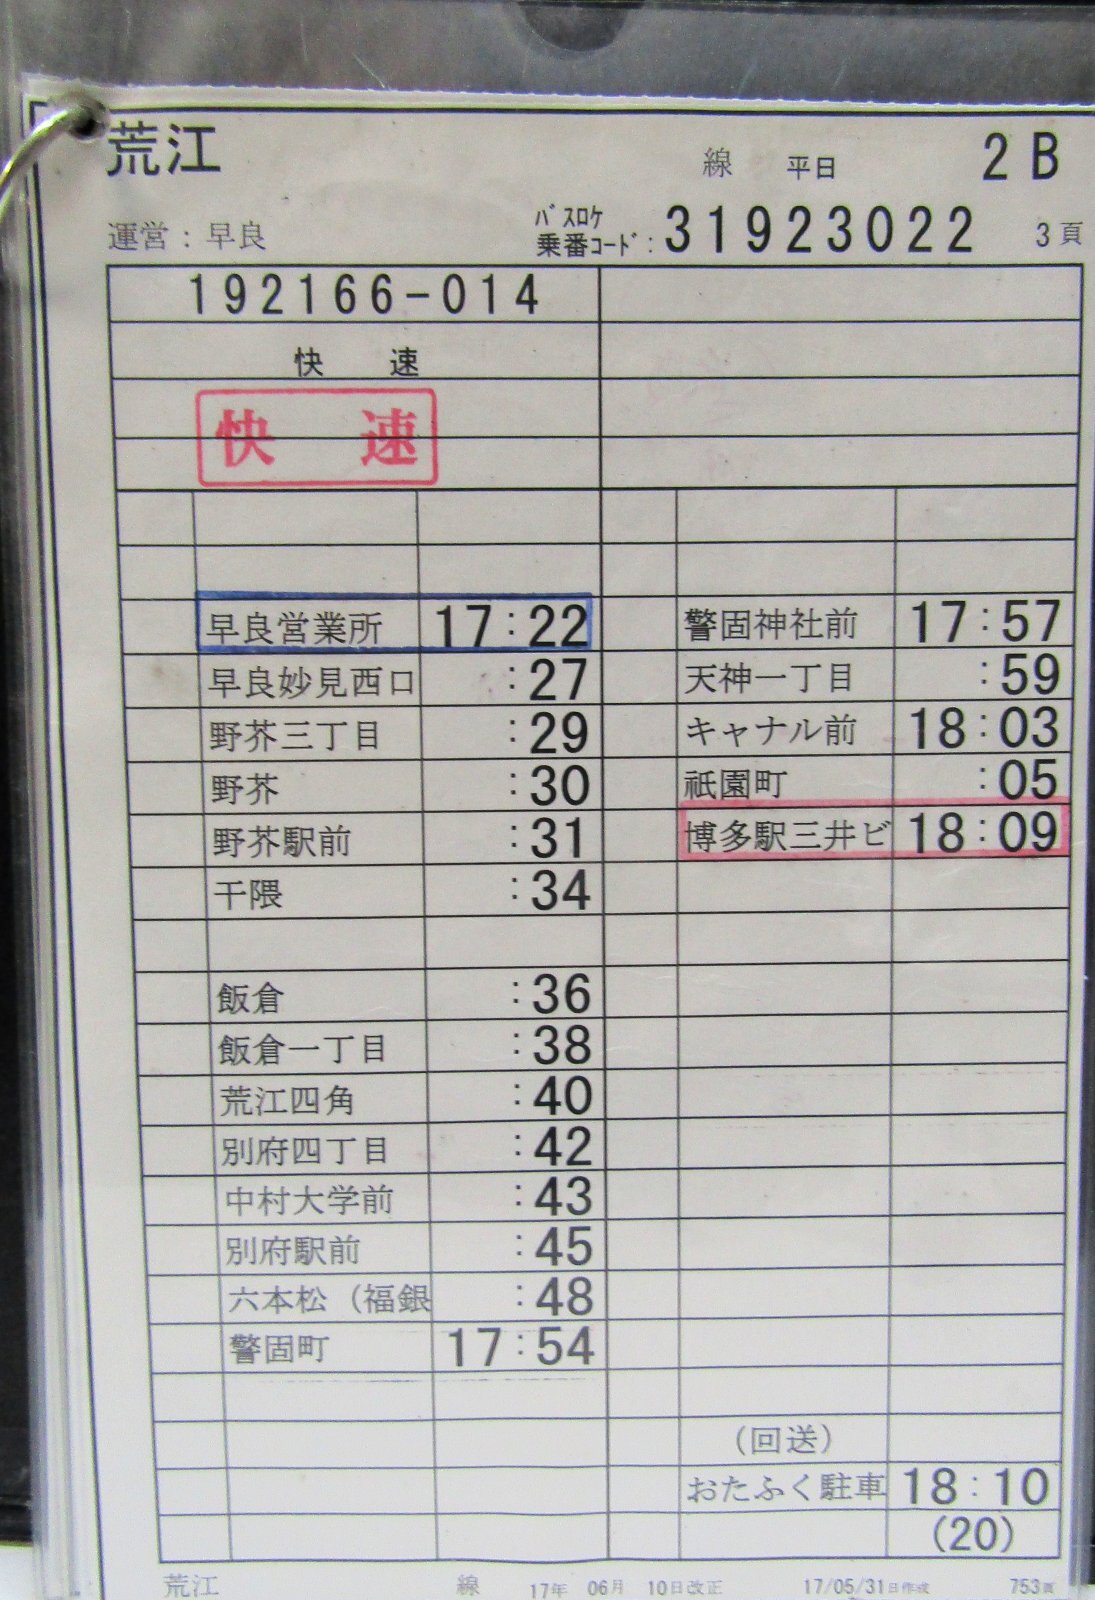 荒江 線 平日 2B
運営：早良 ﾊﾞｽﾛｹ乗番ｺｰﾄﾞ: 31923022 3頁
192166-014
快 速
快 速
早良営業所 17:22
早良妙見西口 :27
野芥三丁目 :29
野芥 :30
野芥駅前 :31
干隈 :34
飯倉 :36
飯倉一丁目 :38
荒江四角 :40
別府四丁目 :42
中村大学前 :43
別府駅前 :45
六本松（福銀 :48
警固町 17:54
警固神社前 17:57
天神一丁目 :59
キャナル前 18:03
祇園町 :05
博多駅三井ビ 18:09
（回送）
おたふく駐車 18:10
(20)
荒江 線 17年 06月 10日改正 17/05/31日作成 753頁